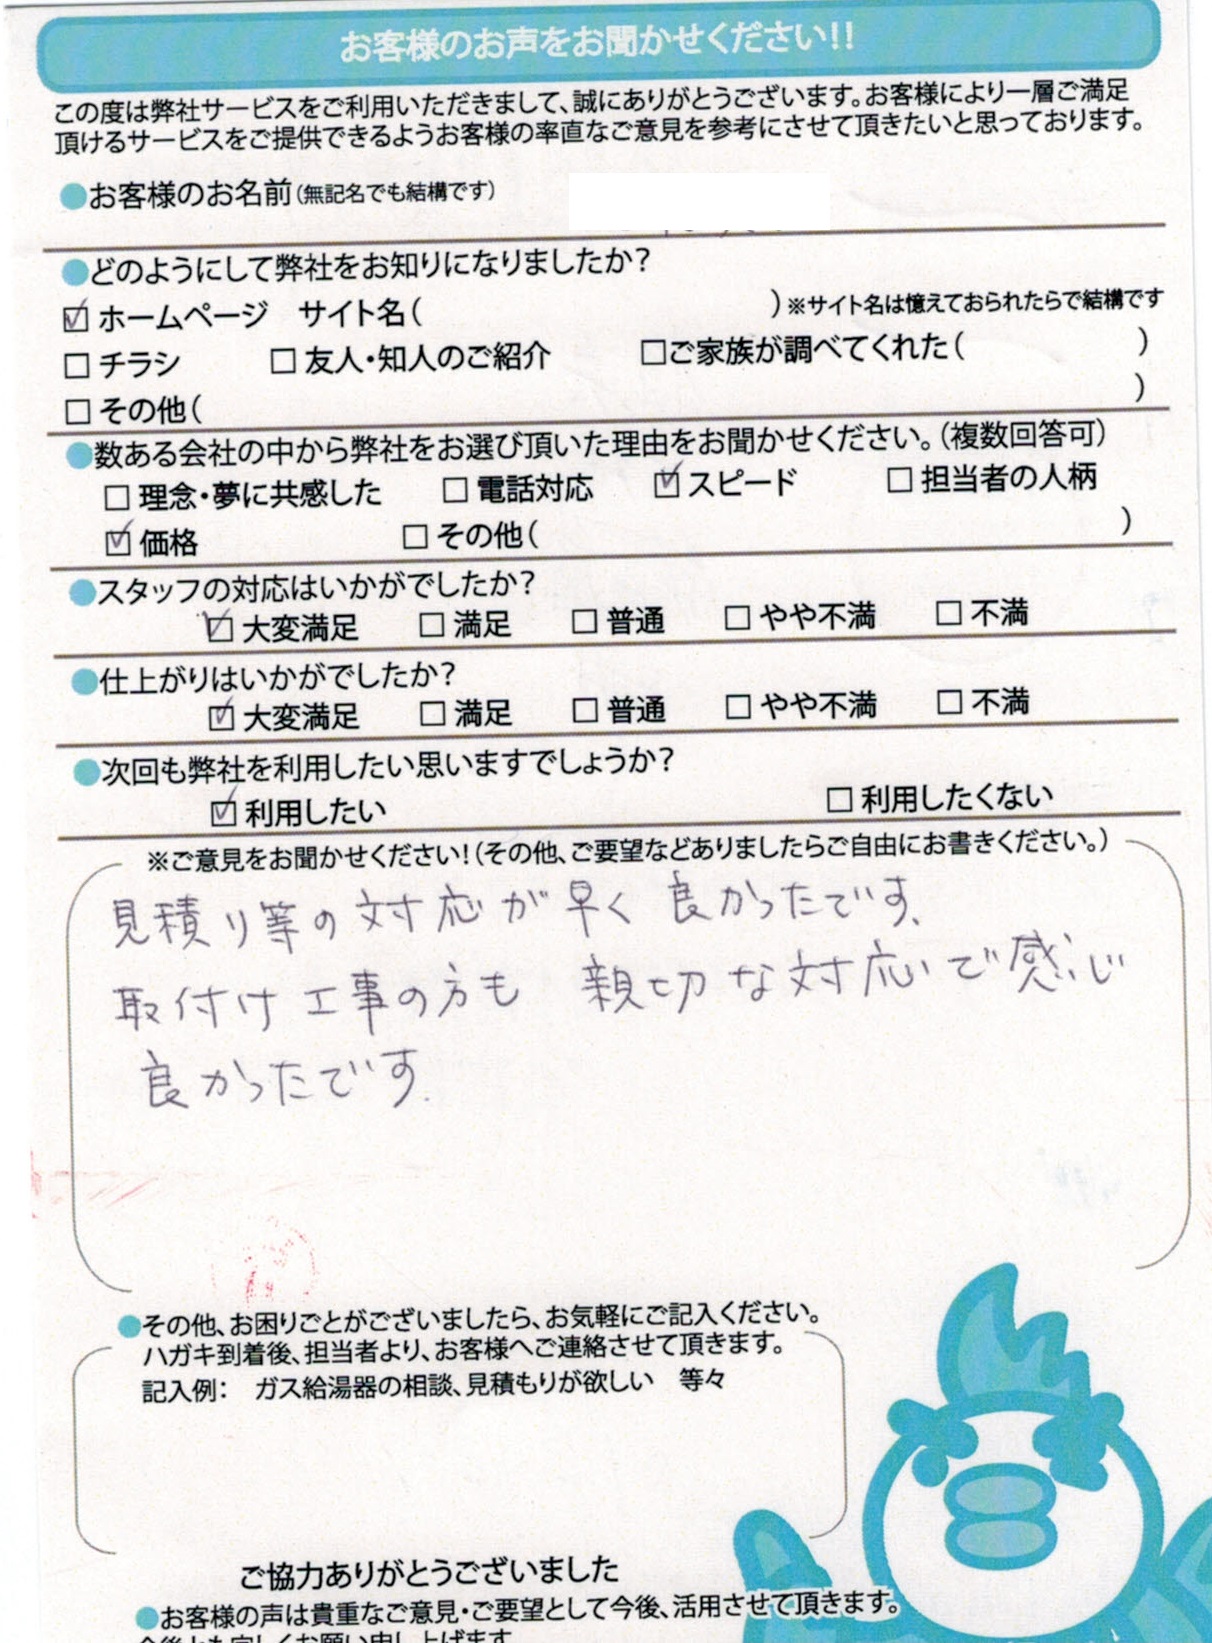 お客様のお声をお聞かせください!!
この度は弊社サービスをご利用いただきまして、誠にありがとうございます。お客様により一層ご満足
頂けるサービスをご提供できるようお客様の率直なご意見を参考にさせて頂きたいと思っております。
●お客様のお名前(無記名でも結構です)
●どのようにして弊社をお知りになりましたか?
☑ ホームページ　サイト名(　　　)※サイト名は憶えておられたらで結構です
□ チラシ　□ 友人・知人のご紹介　□ご家族が調べてくれた(　　　)
□ その他(　　　)
●数ある会社の中から弊社をお選び頂いた理由をお聞かせください。(複数回答可)
□ 理念・夢に共感した　□ 電話対応　☑ スピード　□ 担当者の人柄
☑ 価格　□ その他(　　　)
●スタッフの対応はいかがでしたか?
☑ 大変満足　□ 満足　□ 普通　□ やや不満　□ 不満
●仕上がりはいかがでしたか?
☑ 大変満足　□ 満足　□ 普通　□ やや不満　□ 不満
●次回も弊社を利用したい思いますでしょうか?
☑ 利用したい　□ 利用したくない
※ご意見をお聞かせください!(その他、ご要望などありましたらご自由にお書きください。)
見積り等の対応が早く良かったです。
取付け工事の方も 親切な対応で感じ
良かったです。
●その他、お困りごとがございましたら、お気軽にご記入ください。
ハガキ到着後、担当者より、お客様へご連絡させて頂きます。
記入例：　ガス給湯器の相談、見積もりが欲しい　等々
ご協力ありがとうございました
●お客様の声は貴重なご意見・ご要望として今後、活用させて頂きます。
今後とも宜しくお願い申し上げます